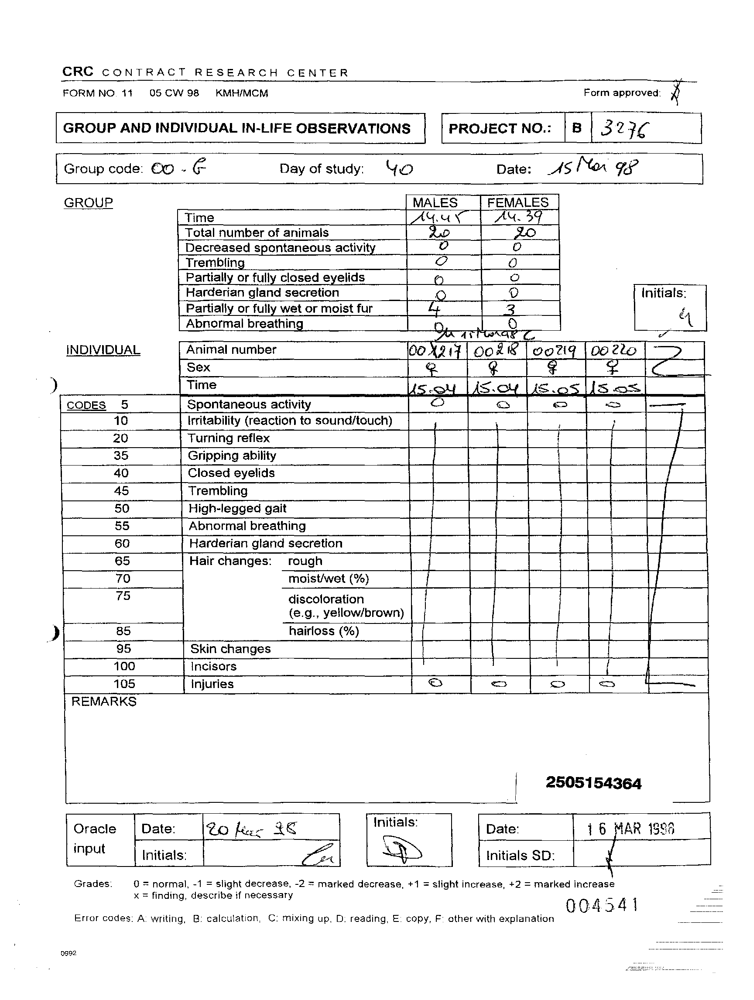 CRC CONTRACT RESEARCH CENTER
FORM NO. 11 05 CW 98 KMH/MCM Form approved:
GROUP AND INDIVIDUAL IN-LIFE OBSERVATIONS PROJECT NO.: B 3276
Group code: 00 - G Day of study: 40 Date: 15 Mar 98
GROUP MALES FEMALES
Time 14.45 14.39
Total number of animals 20 20
Decreased spontaneous activity 0 0
Trembling 0 0
Partially or fully closed eyelids 0 0
Harderian gland secretion 0 0 Initials:
Partially or fully wet or moist fur 4 3
Abnormal breathing 0 0
INDIVIDUAL Animal number 00217 00218 00219 00220
Sex ♀ ♀ ♀ ♀
Time 15.04 15.04 15.05 15.05
CODES 5 Spontaneous activity 0 0 0 0
10 Irritability (reaction to sound/touch)
20 Turning reflex
35 Gripping ability
40 Closed eyelids
45 Trembling
50 High-legged gait
55 Abnormal breathing
60 Harderian gland secretion
65 Hair changes: rough
70 moist/wet (%)
75 discoloration
(e.g., yellow/brown)
85 hairloss (%)
95 Skin changes
100 Incisors
105 Injuries 0 0 0 0
REMARKS
2505154364
Oracle input Date: 20 Mar 98 Initials: Date: 16 MAR 1998
Initials: Initials SD:
Grades: 0 = normal, -1 = slight decrease, -2 = marked decrease, +1 = slight increase, +2 = marked increase
x = finding, describe if necessary
004541
Error codes: A: writing, B: calculation, C: mixing up, D: reading, E: copy, F: other with explanation
0992